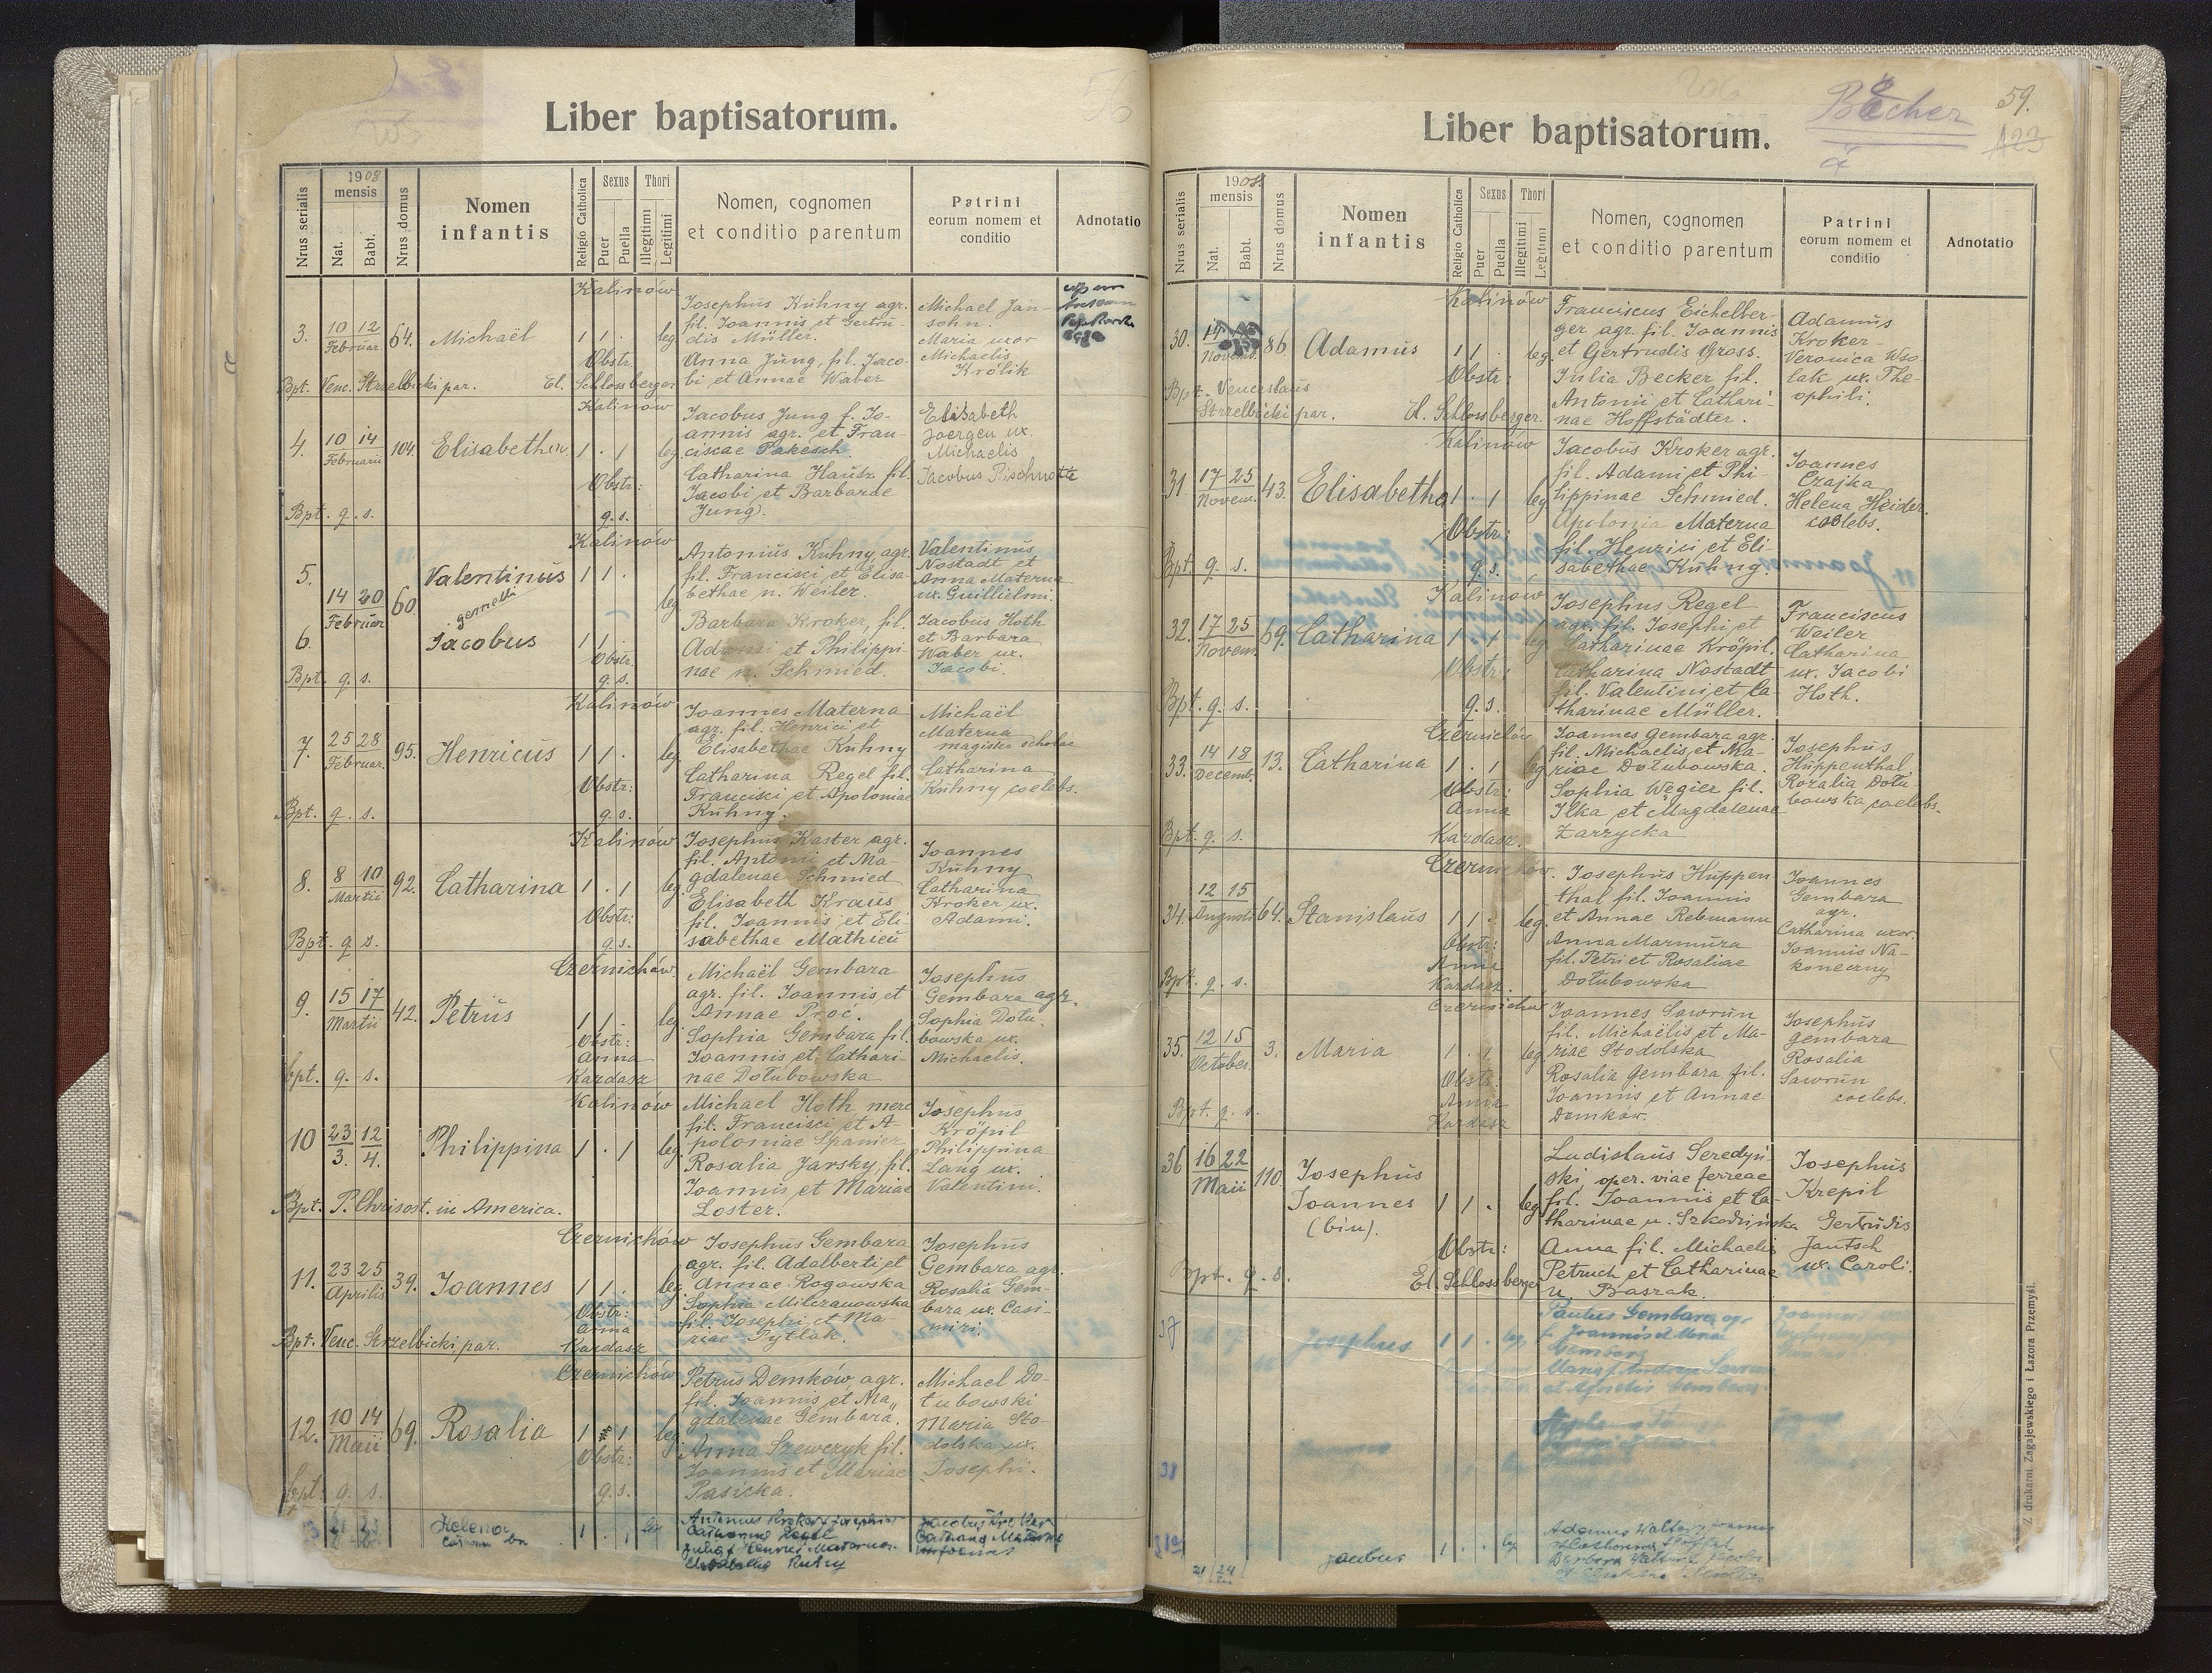 Liber baptisatorum.
Nrus serialis
1908
mensis
Nat.
Babt.
Nrus domus
Nomen
infantis
Religio Catholica
Sexus
Puer
Puella
Thori
Illegitimi
Legitimi
Nomen, cognomen
et conditio parentum
Patrini
eorum nomem et
conditio
Adnotatio
Kalinów
3.
10 12
Februar.
64.
Michaël
1 1 . leg
Obstr:
Josephus Kühny agr.
fil. Joannis et Gertru-
dis Müller.
Anna Jung, fil. Jaco-
bi et Annae Waber
Michael Jan-
sohn.
Maria uxor
Michaelis
Królik
Bpt. Venc. Strzelbicki par.
El. Schlossberger
Kalinów
4.
10 14
Februarii
104.
Elisabetha
1 . 1 leg
Obstr:
g. s.
Jacobus Jung f. Jo-
annis agr. et Fran-
ciscae Pakesch
Catharina Hausz fil.
Jacobi et Barbarae
Jung.
Elisabeth
Joergen ux.
Michaelis
Jacobus Pischnotte
Bpt. q. s.
Kalinów
5.
14 20
Februar
60.
Valentinus
gemelli
6.
Jacobus
1 1 .
leg
1 1 .
Obstr.
g. s.
Antonius Kühny, agr.
fil. Francisci et Elisa-
bethae n. Weiler.
Barbara Kroker, fil.
Adami et Philippi-
nae n. Schmied.
Valentinus
Nostadt et
Anna Materna
ux. Guillielmi.
Jacobus Hoth
et Barbara
Waber ux.
Jacobi.
Bpt. q. s.
Kalinów
7.
25 28
Februar.
95.
Henricus
1 1 . leg
Obstr:
g. s.
Joannes Materna
agr. fil. Henrici et
Elisabethae Kühny
Catharina Regel fil.
Francisci et Apoloniae
Kühny.
Michaël
Materna
magister scholae
Catharina
Kühny coelebs.
Bpt. q. s.
Kalinów
8.
8 10
Martii
92.
Catharina
1 . 1 leg.
Obstr:
g. s.
Josephus Kaster agr.
fil. Antonii et Ma-
gdalenae Schmied
Elisabeth Kraus
fil. Joannis et Eli-
sabethae Mathieu
Joannes
Kühny
Catharina
Kroker ux.
Adami.
Bpt. q. s.
Czernichów.
9.
15 17
Martii
42.
Petrus
1 1 . leg
Obstr:
Anna
Kardasz
Michaël Gembara
agr. fil. Joannis et
Annae Proć.
Sophia Gembara fil.
Joannis et Cathari-
nae Dołubowska
Josephus
Gembara agr.
Sophia Dołu-
bowska ux.
Michaelis.
bpt. q. s.
Kalinów
10
23 12
3. 4.
Philippina
1 . 1 leg
Michael Hoth merc
fil. Francisci et A
poloniae Spanier
Rosalia Jarsky, fil.
Joannis et Mariae
Loster.
Josephus
Kröpil
Philippina
Lang ux.
Valentini.
Bpt. P. Chrisost. in America.
Czernichów
11.
23 25
Aprilis
39.
Joannes
1 1 . leg
Obstr:
Anna
Kardasz
Josephus Gembara
agr. fil. Adalberti et
Annae Rogowska
Sophia Milczanowska
fil. Josephi, et Ma
riae Pytlak.
Josephus
Gembara agr.
Rosalia Gem-
bara ux. Casi-
miri.
Bpt. Venc. Strzelbicki, par.
Czernichów
12.
10 14
Maii
69.
Rosalia
1 1 leg
Obstr:
g. s.
Petrus Demków agr.
fil. Joannis et Ma„
gdalenae Gembara.
Anna Szewczyk fil.
Joannis et Mariae
Pasicka.
Michael Do-
łubowski
Maria Sto-
dolska ux.
Josephi.
bpt. q. s.
Helena
1 . 1 leg
Antonius Kroker f Josephi et
Catharina Regel
Julia f Henrici Materna
Jacobus Kroker
Catharina Materna
59.
Becher
Liber baptisatorum.
Nrus serialis
1908.
mensis
Nat.
Babt.
Nrus domus
Nomen
infantis
Religio Catholica
Sexus
Puer
Puella
Thori
Illegitimi
Legitimi
Nomen, cognomen
et conditio parentum
Patrini
eorum nomem et
conditio
Adnotatio
Kalinów
30.
14
Novemb.
86.
Adamus
1 1 . leg.
Obstr:
Franciscus Eichelber-
ger agr. fil. Joannis
et Gertrudis Gross.
Julia Becker fil.
Antonii et Cathari-
nae Hoffstädter.
Adamus
Kroker
Veronica Wso
lak ux. The-
ophili.
Bpt. Venceslaus
Strzelbicki par.
El. Schlossberger.
Kalinów
31.
17 25
Novem.
43.
Elisabetha
1 . 1 leg
Obstr:
g. s.
Jacobus Kroker agr.
fil. Adami et Phi-
lippinae Schmied.
Apolonia Materna
fil. Henrici et Eli-
sabethae Kühny.
Joannes
Czajka
Helena Heider.
coelebs.
Bpt. q. s.
Kalinów
32.
17 25
Novem.
69.
Catharina
1 . 1 leg
Obstr:
g. s.
Josephus Regel
agr. fil. Josephi et
Catharinae Kröpil.
Catharina Nostadt
fil. Valentini et Ca-
tharinae Müller.
Franciscus
Weiler
Catharina
ux. Jacobi
Hoth.
Bpt. q. s.
Czernichów
33.
14 18
Decemb.
13.
Catharina
1 . 1 leg
Obstr:
Anna
Kardasz.
Joannes Gembara agr.
fil. Michaelis, et Ma-
riae Dołubowska.
Sophia Węgier fil.
Ilka et Magdalenae
Zarzycka
Josephus
Huppenthal
Rozalia Dołu
bowska coelebs.
Bpt. q. s.
Czernichów.
34.
12 15
Augusti
64.
Stanislaus
1 1 . leg.
Obstr:
Anna
Kardasz.
Josephus Huppen
thal fil. Joannis
et Annae Rebmann
Anna Marmura
fil. Petri et Rosaliae
Dołubowska
Joannes
Gembara
agr.
Catharina uxor.
Joannis Na-
koneczny
Bpt. q. s.
Czernichów
35.
12 15
October.
3.
Maria
1 . 1 leg
Obstr:
Anna
Kardasz
Joannes Sawrun
fil. Michaëlis et Ma-
riae Stodolska
Rosalia Gembara fil.
Joannis et Annae
Demków.
Josephus
Gembara
Rosalia
Sawrun
coelebs.
Bpt. q. s.
36
16 22
Maii
110.
Josephus
Joannes
(bin).
1 1 . leg
Obstr:
El. Schlossberger
Ladislaus Seredyń-
ski, oper. viae ferreae
fil. Joannis et Ca-
tharinae n. Szkodzińska
Anna fil. Michaelis
Petruch et Catharinae
n. Baszak.
Josephus
Krepil
Gertrudis
Jantsch
ux. Caroli.
Bpt. q. s.
37
Josephus
1 1 . leg
Paulus Gembara, agr
f. Joannis et Mariae
Gembara
38
Jacobus
1 . . leg
Adamus Walter f Joannis
21 24
Z drukarni Zagajewskiego i Łazora Przemyśl.